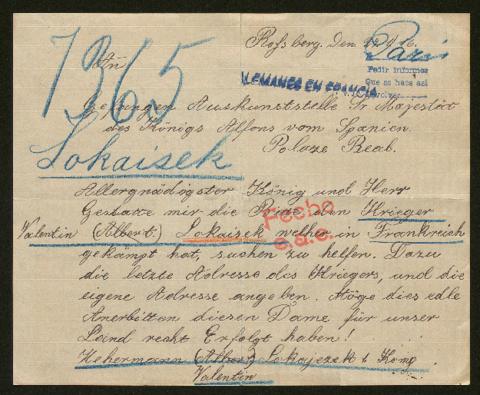 1365
Rossberg. Den
Paris
An
Pedir informes
Que se haga asi
ALEMANES EN FRANCIA
Gefangen Auskunststelle Sr Majestät
des Königs Alfons vom Spanien.
Lokaisek
Palaze Real.
Allergnädigster König und Herr
Gestatte mir die Bitte den Krieger
Fecho
Valentin (Albert) Lokaisek welher in Frankreich
gekämpt hat, suchen zu helfen. Dazu
die letzte Adresse des Kriegers, und die
eigene Adresse angeben. Möge dies edle
Anerbitten diesen Dame für unser
Leind recht Erfolgt haben!
Wehermann (Albert) Lokajezek 1 Komp
Valentin